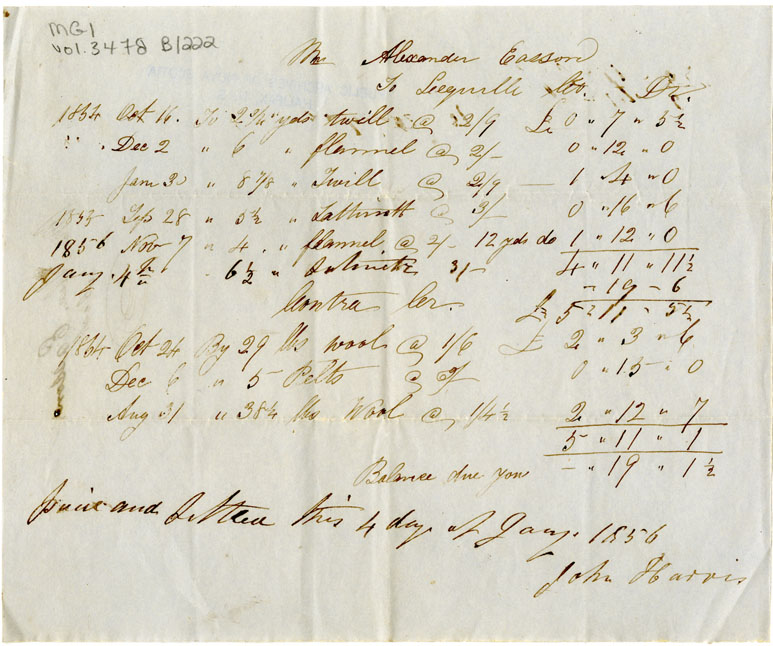 MG1
vol. 3478 B/222
Mr Alexander Easson
To Leequille Dr.
1854 Oct 16. To 2 3/4 yds twill @ 2/9 £ 0 " 7 " 5 ½
" " Dec 2 " 6 " flannel @ 2/- 0 " 12 " 0
Jan 3 " 8 7/8 " Twill @ 2/9 — 1 " 4 " 0
1855 Sep 28 " 5 ½ " @ 3/- 0 " 16 " 6
1856 Nov 7 " 4 " flannel @ 2/- 12 yds do 1 " 12 " 0
Jany. 4th " 6 ½ " 3/- 4 " 11 " 11 ½
" 19 - 6
Contra Cr. £ 5 " 11 - 5 ½
1854 Oct 24 By 29 lbs wool @ 1/6 £ 2 " 3 " 6
Dec 6 " 5 Pelts @ 0 " 15 " 0
Aug 31 " 38 ¼ lbs Wool @ 1/4 ½ 2 " 12 " 7
5 " 11 " 1
Balance due you — " 19 " 1 ½
and this 4 day of Jany. 1856
John Harris